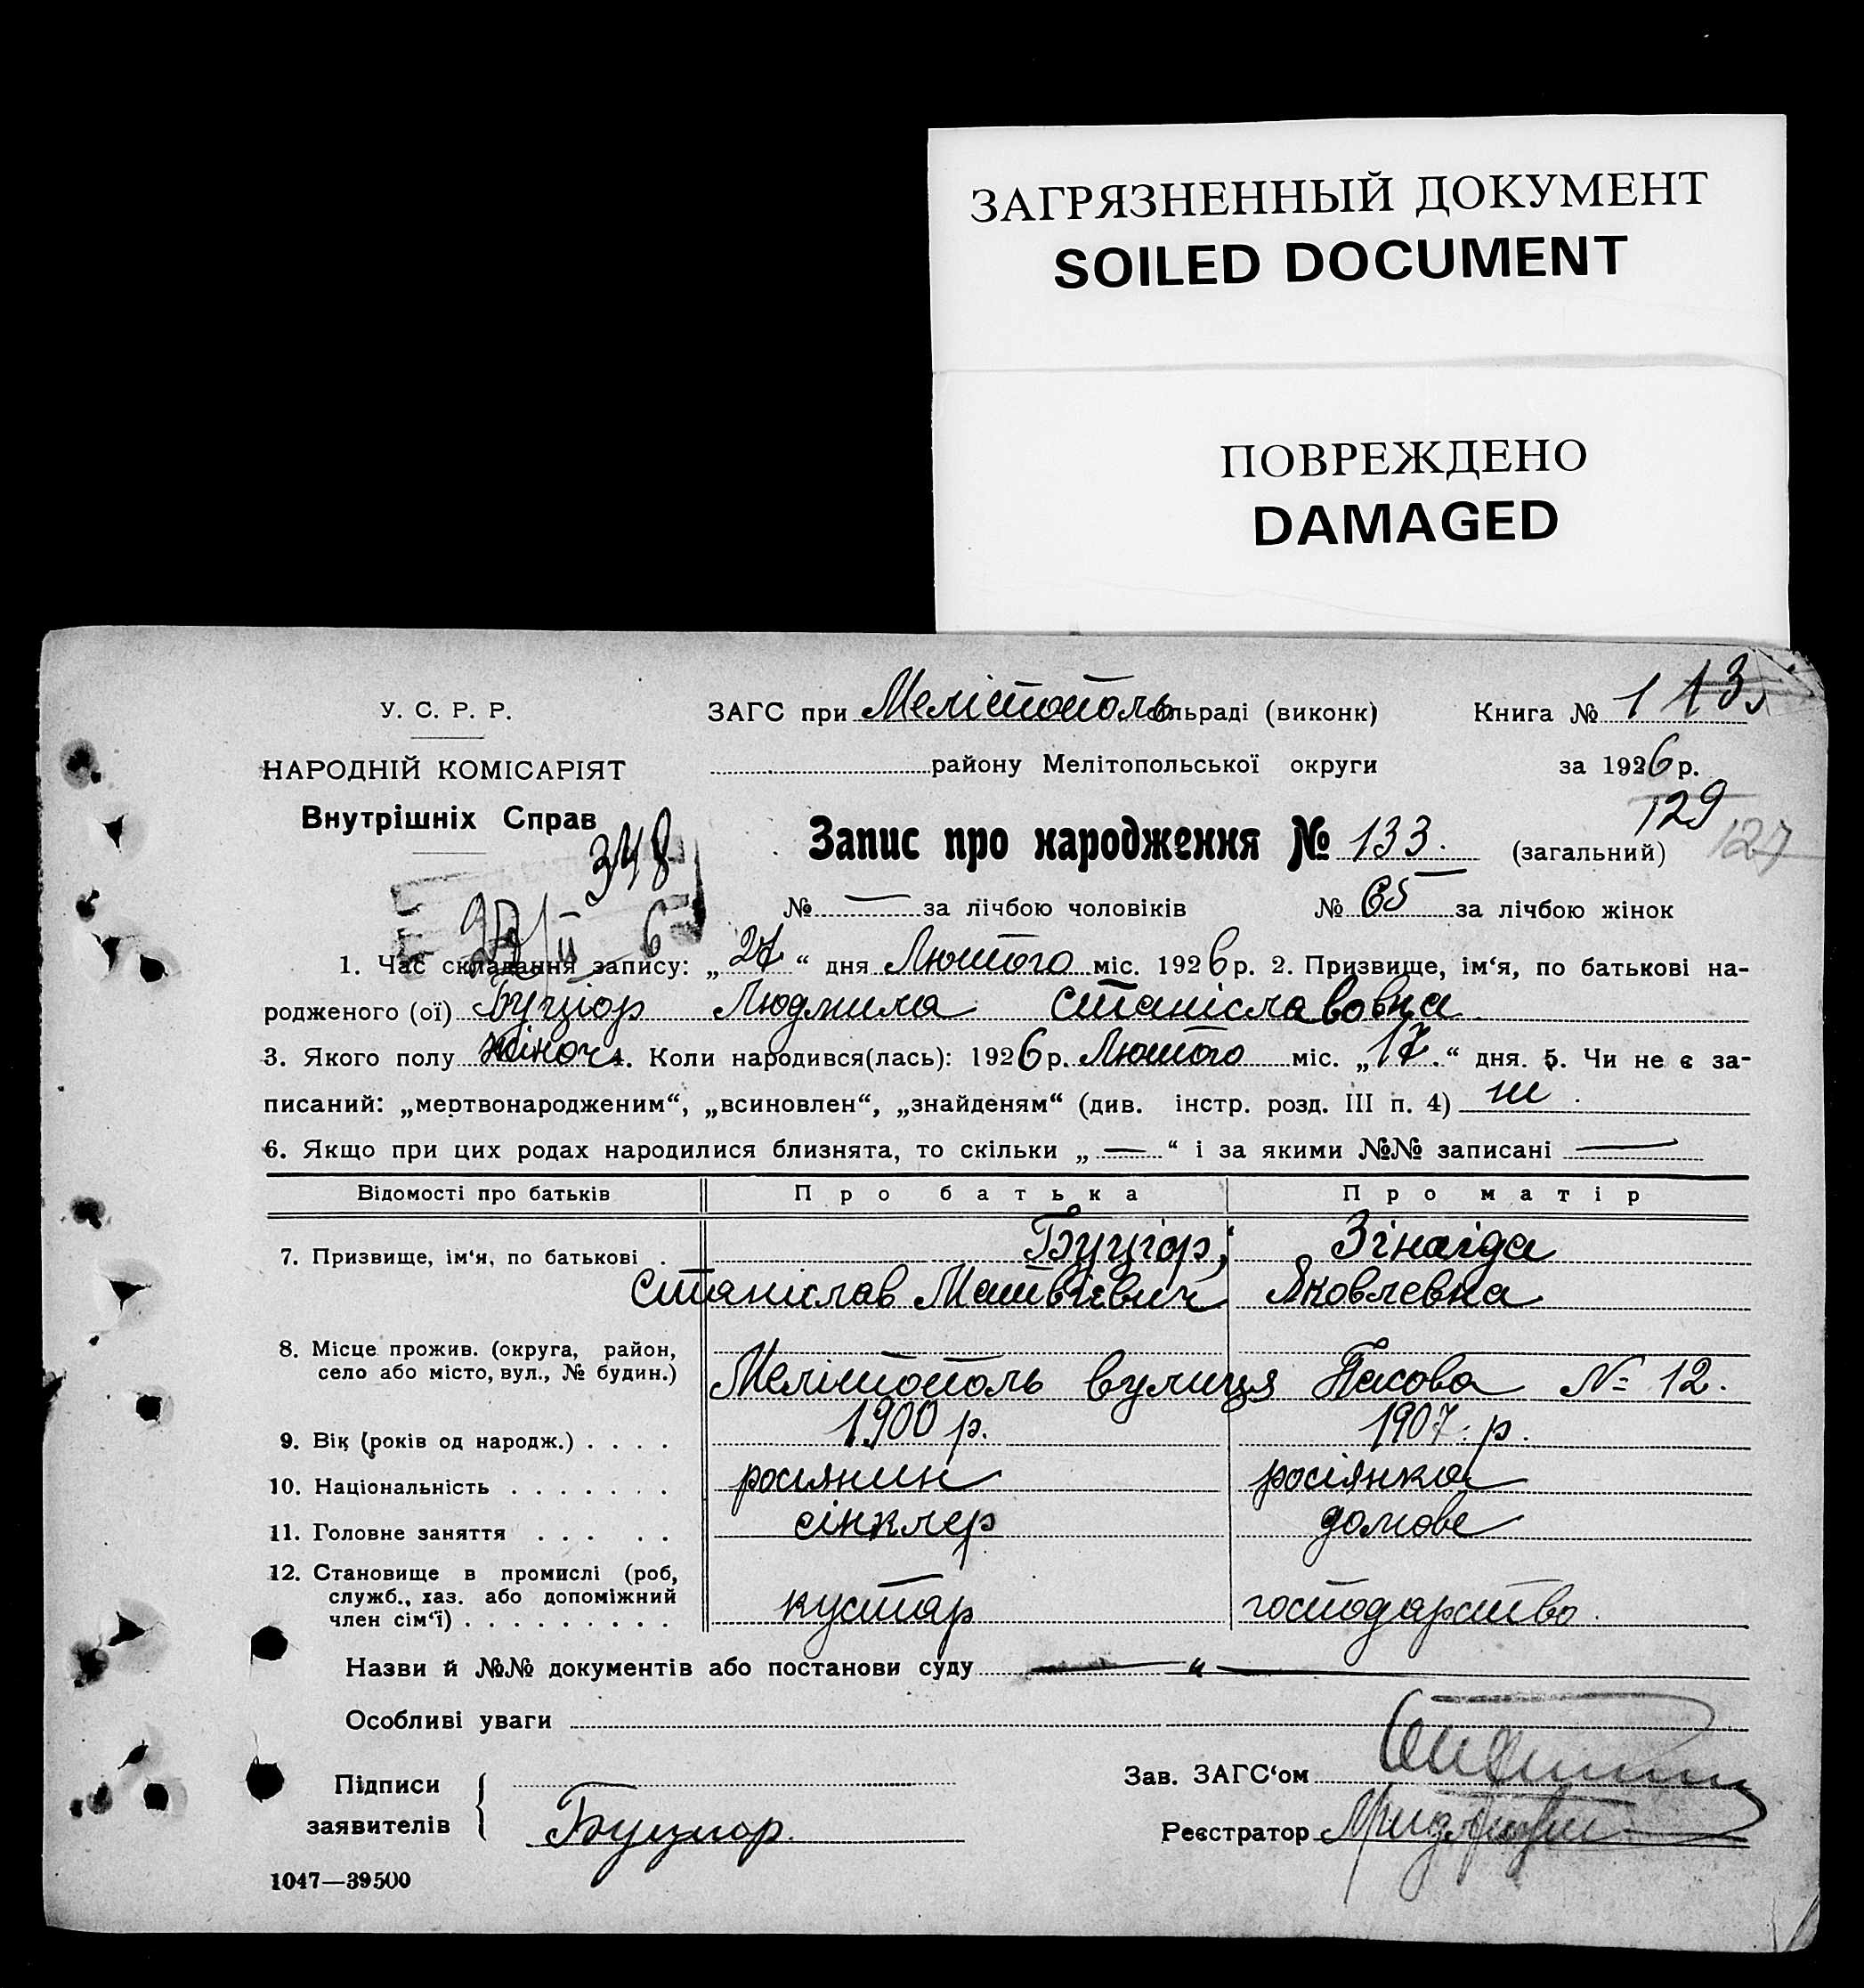 ЗАГРЯЗНЕННЫЙ ДОКУМЕНТ
SOILED DOCUMENT
ПОВРЕЖДЕНО
DAMAGED
У. С. Р. Р.
НАРОДНІЙ КОМІСАРІЯТ
Внутрішніх Справ
348
ЗАГС при Мелітополь сільраді (виконк) Книга № 1 13
району Мелітопольської округи за 1926 р.
129
127
Запис про народження № 133. (загальний)
№ — за лічбою чоловіків № 65 за лічбою жінок
27/II 6
1. Час складання запису: „27“ дня Лютого міс. 1926 р. 2. Призвище, ім‘я, по батькові на-
родженого (ої) Буціор Людмила Станіславовна
3. Якого полу жіноч 4. Коли народився(лась): 1926 р. Лютого міс. „17.“ дня. 5. Чи не є за-
писаний: „мертвонародженим“, „всиновлен“, „знайденям“ (див. інстр. розд. III п. 4) ні.
6. Якщо при цих родах народилися близнята, то скільки „—“ і за якими №№ записані —
Відомості про батьків Про батька Про матір
7. Призвище, ім‘я, по батькові . Буціор, Зінаіда
Станіслав Матвієвич Яковлевна
8. Місце прожив. (округа, район,
село або місто, вул., № будин.) Мелітополь вулиця № 12.
9. Вік (років од народж.) . . . . 1900 р. 1907 р.
10. Національність . . . . . . . росіянин росіянка
11. Головне заняття . . . . . сінклер домове
12. Становище в промислі (роб,
служб., хаз. або допоміжний
член сім‘ї) . . . . . . . . . кустар господарство.
Назви й №№ документів або постанови суду — „ —
Особливі уваги
Підписи
заявителів Буциор.
Зав. ЗАГС‘ом
Реєстратор
1047—39500